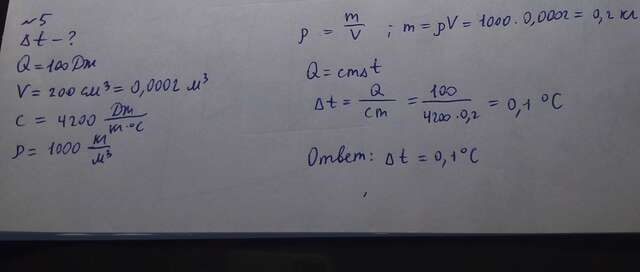 ~5
Δt - ?
Q = 100 Дж
V = 200 см³ = 0,0002 м³
C = 4200 Дж/кг·°C
ρ = 1000 кг/м³
ρ = m/V ; m = ρV = 1000 · 0,0002 = 0,2 кг
Q = cmΔt
Δt = Q/cm = 100/4200·0,2 = 0,1 °C
Ответ: Δt = 0,1 °C